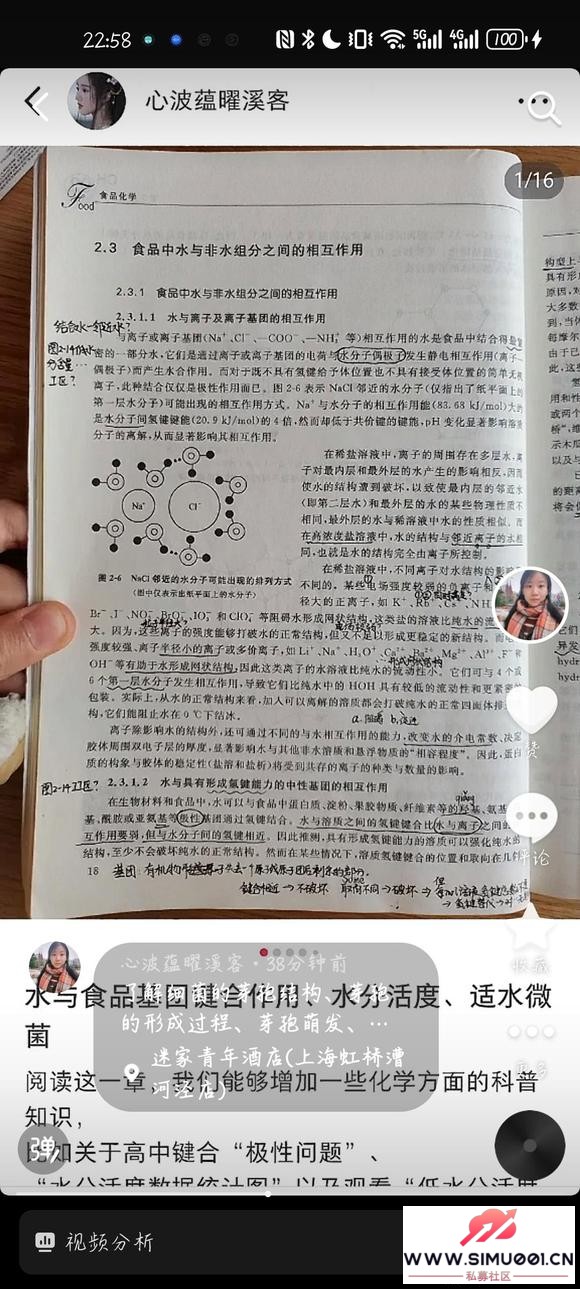 22:58
5G
4G
100
心波蕴曜溪客
1/16
Food
食品化学
2.3 食品中水与非水组分之间的相互作用
2.3.1 食品中水与非水组分之间的相互作用
2.3.1.1 水与离子及离子基团的相互作用
与离子或离子基团(Na⁺、Cl⁻、—COO⁻、—NH₃⁺ 等)相互作用的水是食品中结合得最紧
密的一部分水,它们是通过离子或离子基团的电荷与水分子偶极子发生静电相互作用(离子—
偶极子)而产生水合作用。而对于既不具有氢键给予体位置也不具有接受体位置的简单无机
离子,此种结合仅仅是极性作用而已。图 2-6 表示 NaCl 邻近的水分子(仅指出了纸平面上的
第一层水分子)可能出现的相互作用方式。Na⁺与水分子的相互作用能(83.68 kJ/mol)大约
是水分子间氢键键能(20.9 kJ/mol)的 4 倍,然而却低于共价键的键能,pH 变化显著影响溶质
分子的离解,从而显著影响其相互作用。
Na⁺
Cl⁻
图 2-6 NaCl 邻近的水分子可能出现的排列方式
(图中仅表示出纸平面上的水分子)
在稀盐溶液中,离子的周围存在多层水,离
子对最内层和最外层的水产生的影响相反,因而
使水的结构遭到破坏,以致使最内层的邻近水
(即第二层水)和最外层的水的某些物理性质不
相同,最外层的水与稀溶液中水的性质相似。而
在高浓度盐溶液中,水的结构与邻近离子的水相
同,也就是水的结构完全由离子所控制。
在稀盐溶液中,不同离子对水结构的影响
不同的。某些电场强度较弱的负离子和
径大的正离子,如 K⁺、Rb⁺、Cs⁺、NH
Br⁻、I⁻、NO₃⁻、BrO₃⁻、IO₃⁻ 和 ClO₄⁻ 等阻碍水形成网状结构,这类盐的溶液比纯水的流
大。因为,这些离子的强度能够打破水的正常结构,但又不足以形成更稳定的新结构。而电
强度较强、离子半径小的离子或多价离子,如 Li⁺、Na⁺、H₃O⁺、Ca²⁺、Ba²⁺、Mg²⁺、Al³⁺、F⁻和
OH⁻等有助于水形成网状结构,因此这类离子的水溶液比纯水的流动性小。它们可与 4 个或
6 个第一层水分子发生相互作用,导致它们比纯水中的 HOH 具有较低的流动性和更紧密的
包装。实际上,从水的正常结构来看,加入可以离解的溶质都会打破纯水的正常四面体排
构,它们能阻止水在 0 ℃下结冰。
a.阻碍 b.促进
离子除影响水的结构外,还可通过不同的与水相互作用的能力,改变水的介电常数、决定
胶体周围双电子层的厚度,显著影响水与其他非水溶质和悬浮物质的“相容程度”。因此,蛋白
质的构象与胶体的稳定性(盐溶和盐析)将受到共存的离子的种类与数量的影响。
2.3.1.2 水与具有形成氢键能力的中性基团的相互作用
在生物材料和食品中,水可以与食品中蛋白质、淀粉、果胶物质、纤维素等的羟基、氨基
基、酰胺或亚氨基等极性基团通过氢键结合。水与溶质之间的氢键键合比水与离子之间的
互作用要弱,但与水分子间的氢键相近。因此推测,具有形成氢键能力的溶质可以强化纯水的
结构,至少不会破坏纯水的正常结构。然而在某些情况下,溶质氢键键合的位置和取向在几何
18
键合相近→不破坏 取向不同→破坏
赞
评论
收藏
更多
心波蕴曜溪客·38分钟前
了解细菌的芽孢结构、芽孢
的形成过程、芽孢萌发、…
迷家青年酒店(上海虹桥漕
河泾店)
水与食品基团键合作用、水分活度、适水微
菌
阅读这一章,我们能够增加一些化学方面的科普
知识,
比如关于高中键合“极性问题”、
“水分活度数据统计图”以及观看“低水分活度
弹
视频分析
WWW.SIMU001.CN
私募社区